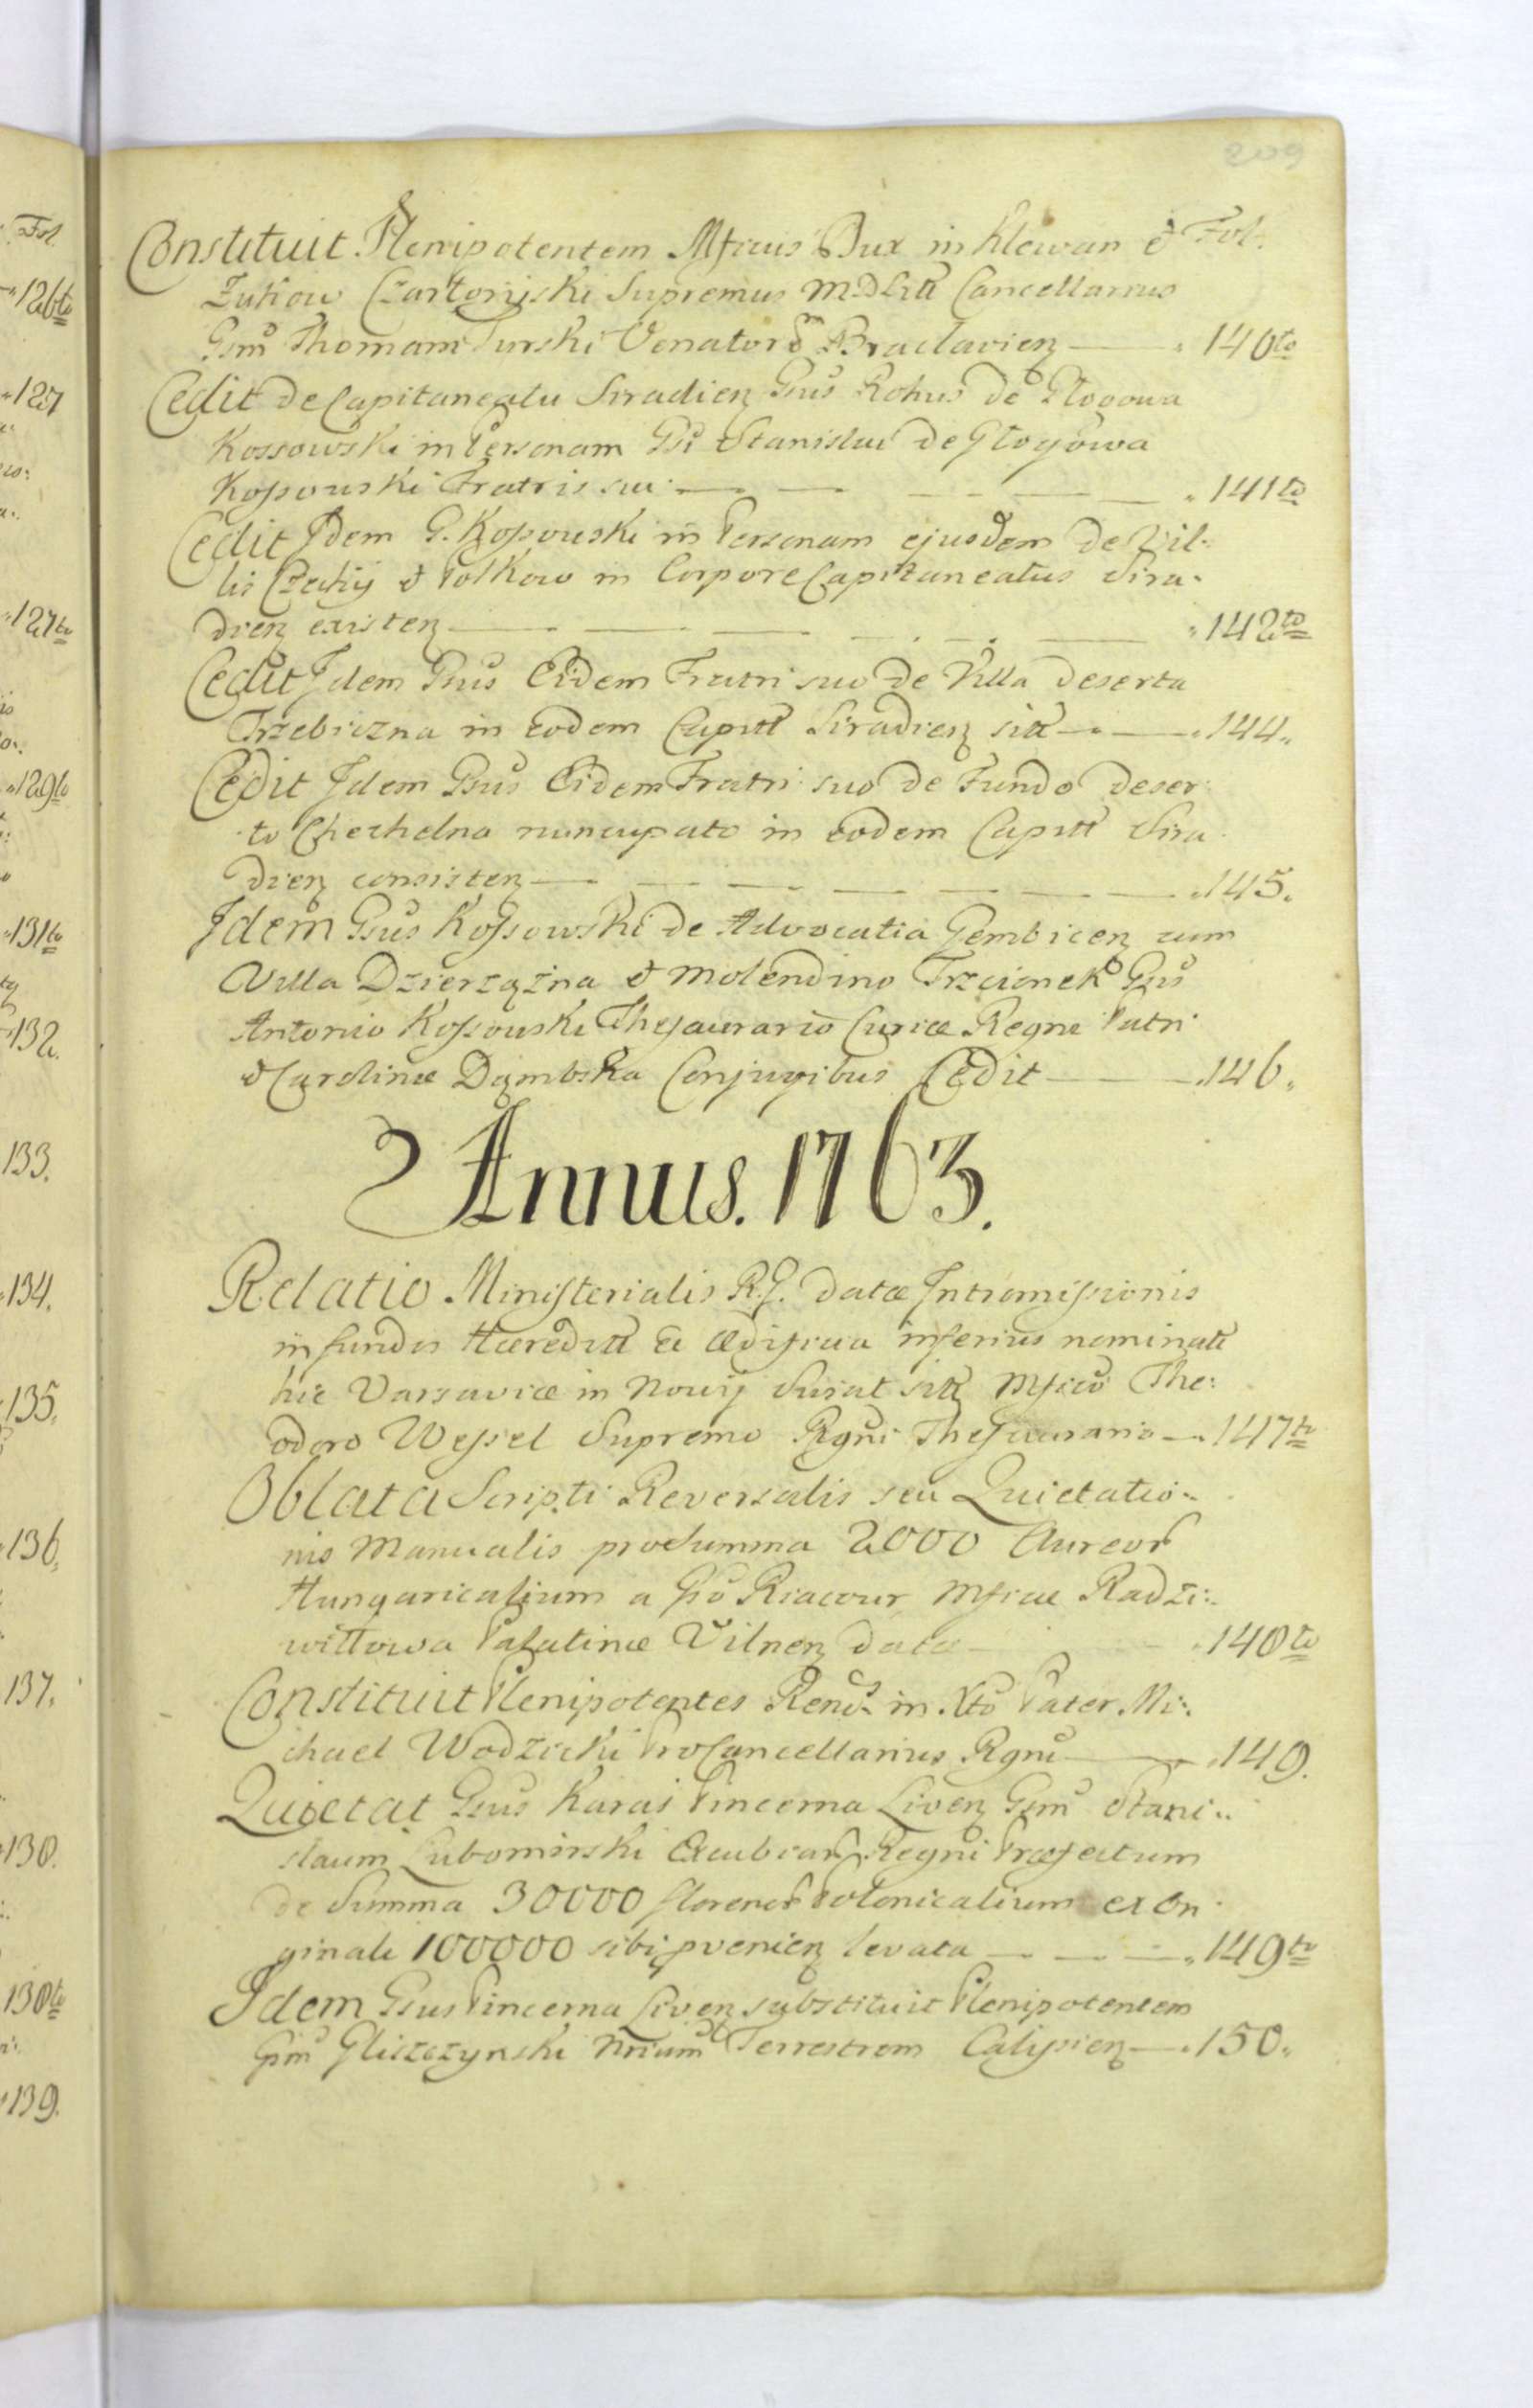 209
Fol.
Constituit Plenipotentem Mficus Dux in Klewan &
Zukow Czartoryiski Supremus M.D.Litt Cancellarius
Gsm̃ Thomam Turski Venatorem Braclavien — 140to
Cedit de Capitaneatu Siradien Gsus Rohus de Głogowa
Kossowski in Personam Gsi Stanislai de Głogowa
Kossowski Fratris sui — 141to
Cedit Idem G. Kossowski in Personam ejusdem de Vil:
lis Czechy & Polkow in Corpore Capitaneatus Sira:
dien existen — 142to
Cedit Idem Gsus Eidem Fratri suo de Villa deserta
Trzebiczna in eodem Capitt Siradien sitt — 144.
Cedit Idem Gsus Eidem Fratri suo de Fundo deser:
to Chechelna nuncupato in eodem Capitt Sira:
dien consisten — 145.
Idem Gsus Kossowski de Advocatia Gembicen cum
Villa Dzierzązna & Molendino Trzcionek Gsis
Antonio Kossowski Thesaurario Curiæ Regni Patri
& Carolinæ Dąmbska Conjugibus Cedit — 146.
Annus. 1763.
Relatio Ministerialis R.G. datæ Intromissionis
in fundos Hæreditt Et ædificia inferius nominatt
hic Varsaviæ in Nowy Swiat sitt Mfico The:
odoro Wessel Supremo Rgni Thesaurario — 147to
Oblata Scripti Reversalis seu Quietatio:
nis Manualis pro Summa 2000 Aureor
Hungaricalium a Gso Riacour Mficæ Radzi:
wiłłowa Palatinæ Vilnen data — 148to
Constituit Plenipotentes Rendus in Xto Pater Mi:
chael Wodzicki ProCancellarius Rgni — 149.
Quietat Gsus Karas Pincerna Liven Gsm̃ Stani:
slaum Lubomirski Excubiar Regni Præfectum
de Summa 30000 florenor Polonicalium ex Ori
ginali 100000 sibi provenien levata — 149to
Idem Gsus Pincerna Liven substituit Plenipotentem
Gsm̃ Gliszczynski Nrium Terrestrem Calisien — 150.